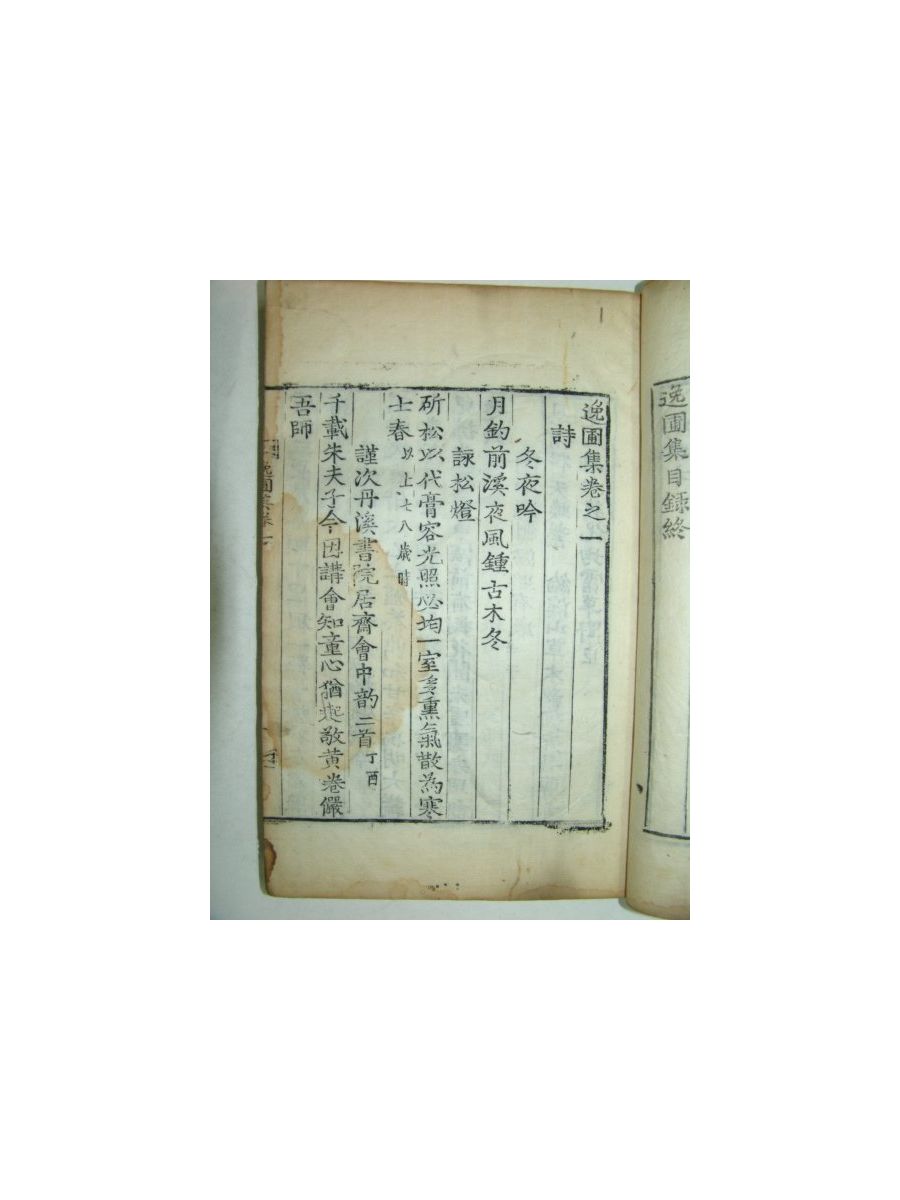 逸圃集目録終
逸圃集卷之一
詩
冬夜吟
月釣前溪夜風鍾古木冬
詠松燈
斫松以代膏容光照必均一室多熏氣散為寒
士春以上七八歲時
謹次丹溪書院居齋會中韵二首丁酉
千載朱夫子今因講會知童心猶起敬黃卷儼
吾師
逸圃集卷一